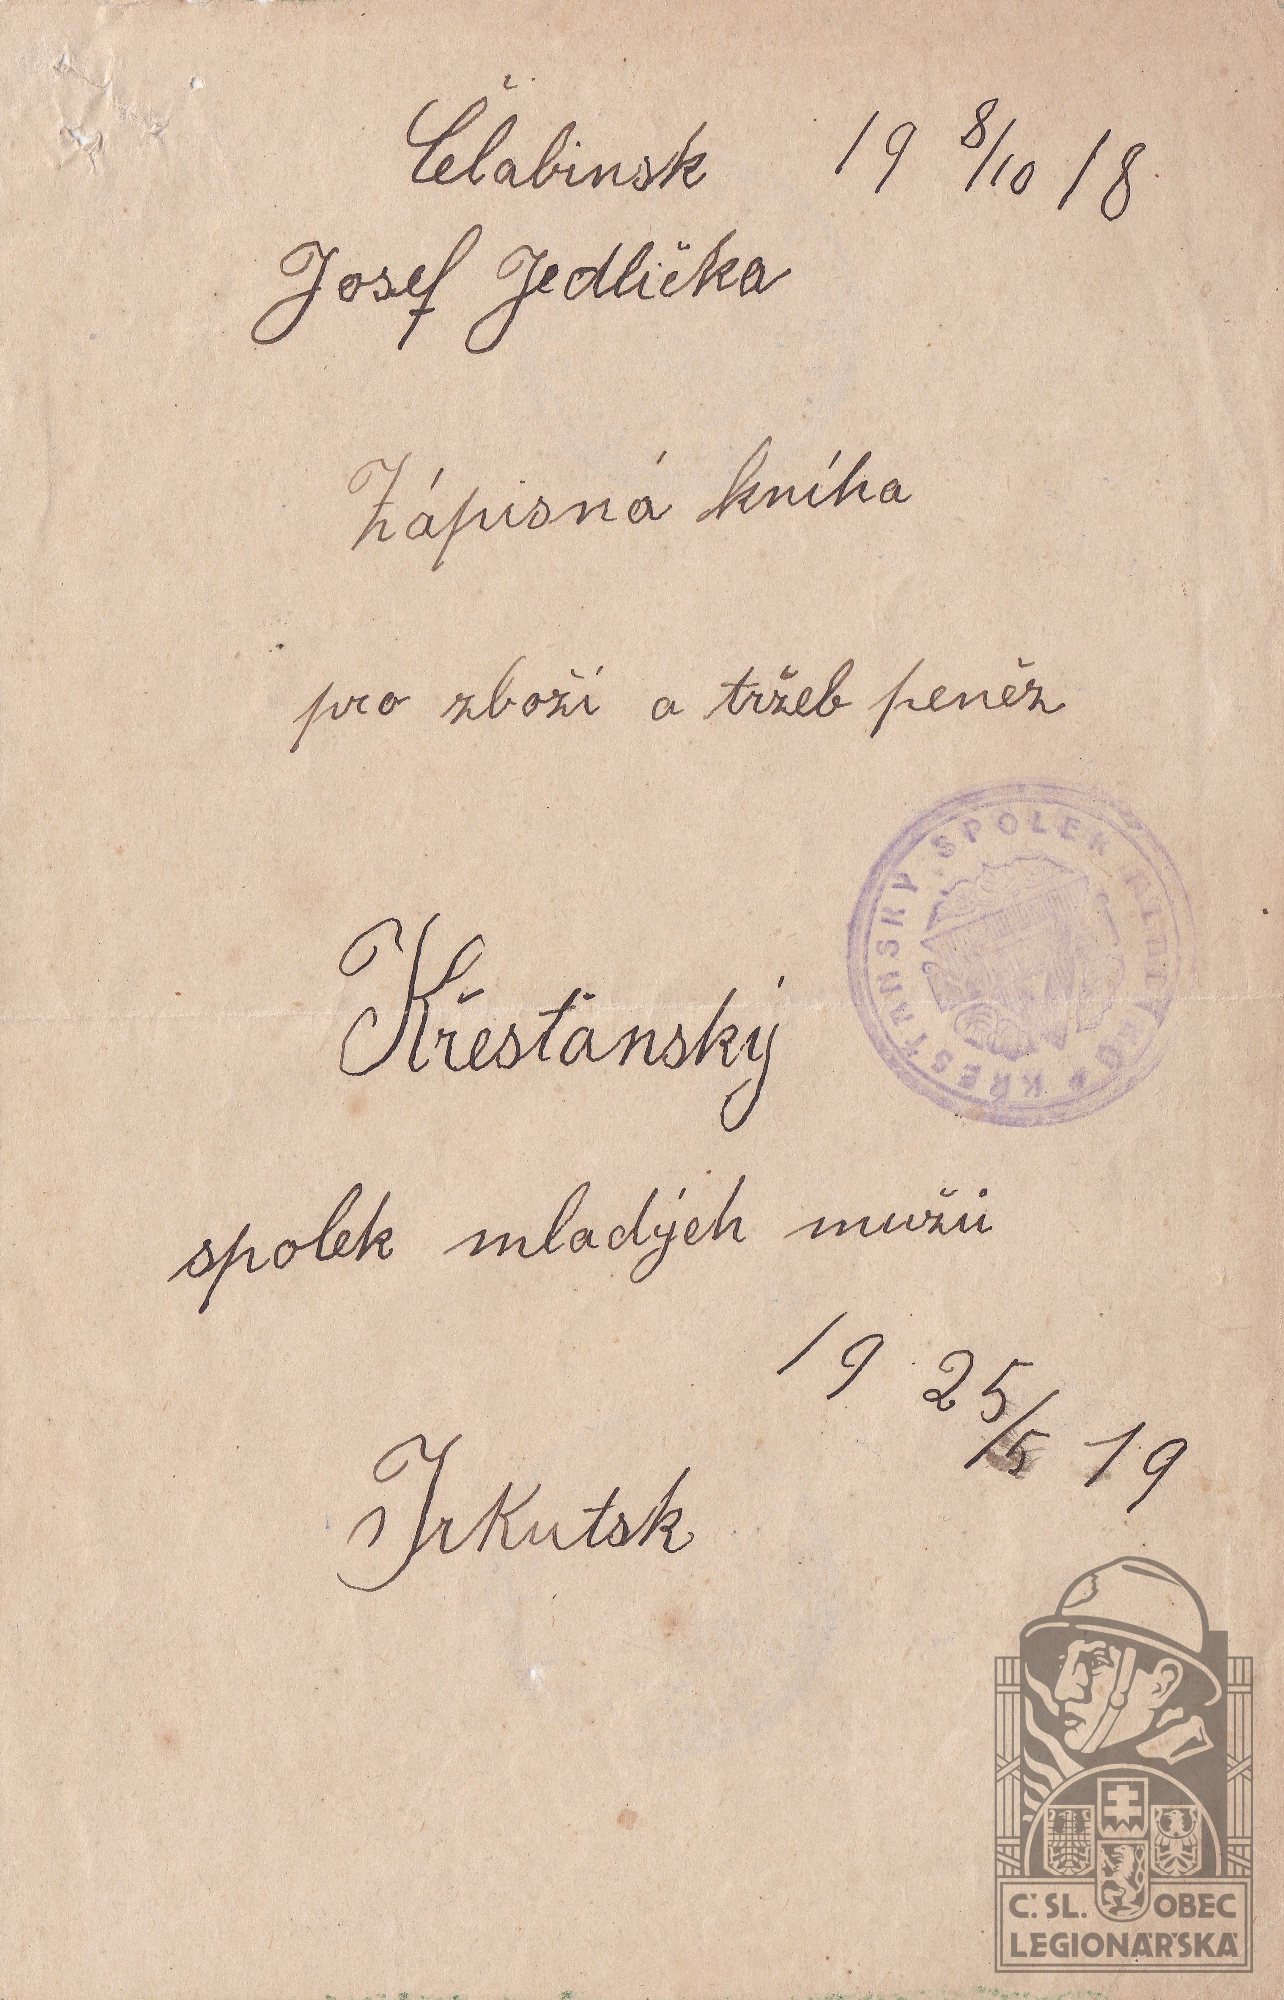 Čelabinsk 19 8/10 18
Josef Jedlička
Zápisná kniha
pro zboží a tržeb peněz
KŘESŤANSKÝ SPOLEK
Křesťanský
spolek mladých mužů
19 25/5 19
Irkutsk
Č. SL. OBEC
LEGIONÁŘSKÁ